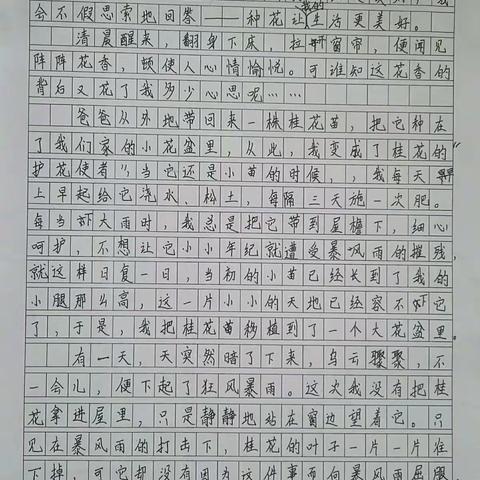 会不假思索地回答——种花让我的生活更美好。
清晨醒来,翻身下床,拉开窗帘,便闻见
阵阵花香,顿使人心情愉悦。可谁知这花香的
背后又花了我多少心思呢……
爸爸从外地带回来一株桂花苗,把它种在
了我们家的小花盆里,从此,我变成了桂花的“
护花使者”,当它还是小苗的时候,,我每天
上早起给它浇水、松土,每隔三天施一次肥。
每当下大雨时,我总是把它带到屋檐下,细心
呵护,不想让它小小年纪就遭受暴风雨的摧残,
就这样日复一日,当初的小苗已经长到了我的
小腿那么高,这一片小小的天地已经容不下它
了,于是,我把桂花苗移植到了一个大花盆里。
有一天,天突然暗了下来,乌云聚聚,不
一会儿,便下起了狂风暴雨。这次我没有把桂
花拿进屋里,只是静静地站在窗边望着它。只
见在暴风雨的打击下,桂花的叶子一片一片往
下掉,可它却没有因为这件事而向暴风雨屈服